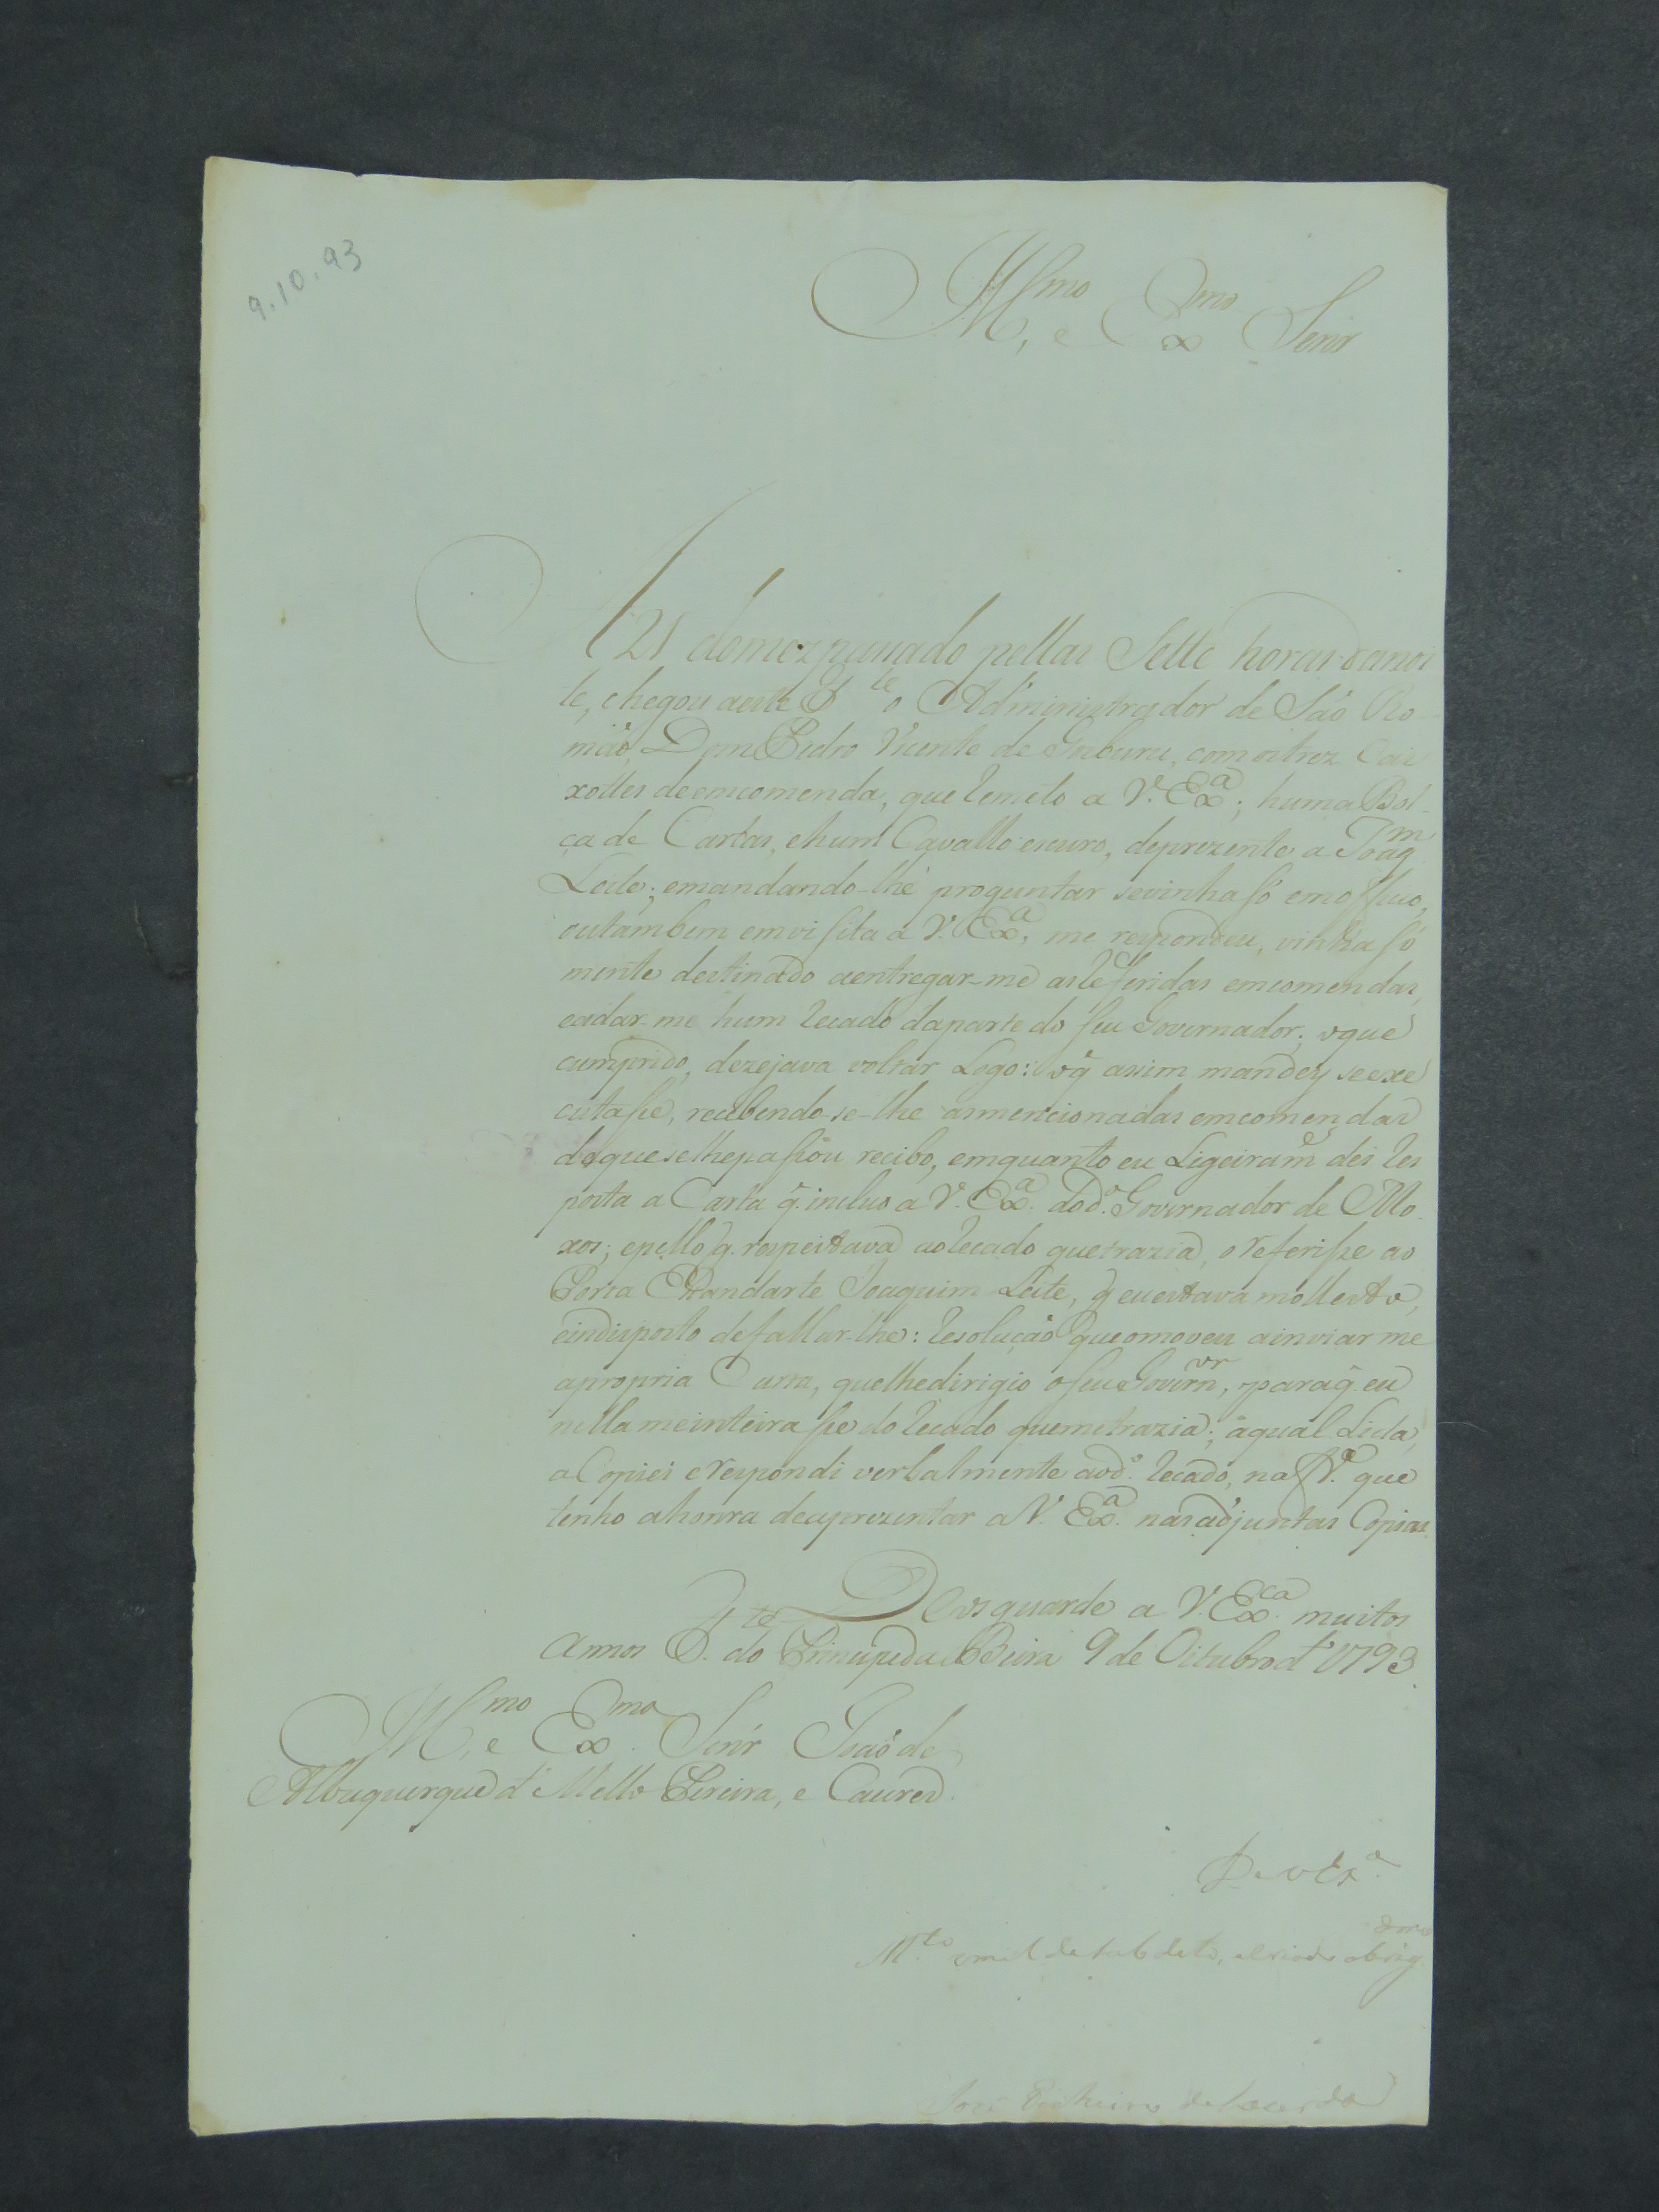 9.10.93
Ill.mo, e Ex.mo Senr
A 21 domez passado pellas Sette horas danoi
te, chegou aeste F.te o Administrador de São Ro-
mão, Dom Pedro Vicente de, com oitrez Cai
xottes deemcomenda, que Remeto a V. Ex.a; huma Bol-
ça de Cartas, ehum Cavallo escuro, deprezente a Joaq.m
Leite; emandando-lhe proguntar sevinha só emofficio,
outambem emvisita a V. Ex.a, me respondeu, vinha só
mente destinado aentregar-me asReferidas emcomendas,
eadar-me hum Recado daparte do seu Governador; oque
cumprido, dezejava voltar Logo: oq̃ assim mandey seexe
cutasse, recebendo-se-lhe asmencionadas emcomendas
dequeselhepassou recibo, emquanto eu Ligeiram.e dei Res
posta a Carta q̃. incluo a V. Ex.a. dod.o Governador de Mo
xos; epello q̃. respeitava aoRecado quetrazia, oreferisse ao
Porta Estandarte Joaquim Leite, q̃ euestava mollesto,
eindisposto defallar-lhe: Resolução queomoveu ainviarme
apropria Carta, quelhedirigio oseu Govern.or, paraq̃. eu
nella meinteirasse do Recado quemetrazia; aqual Lida,
aCopiei erespondi verbalmente aod.o Recado, na fr.a que
tenho ahonra deaprezentar aV. Ex.a. nas adjuntas Copias.
Deos guarde a V. Ex.ca muitos
Annos F.te do Principe da Beira 9 de Oitubro d'1793.
Ill.mo, e Ex.mo Senr João de
Albuquerque d'Mello Pereira, e Caceres.
De V Ex.a
M.to subdito, criado obrig.dmo
José Pinheiro deLacerda